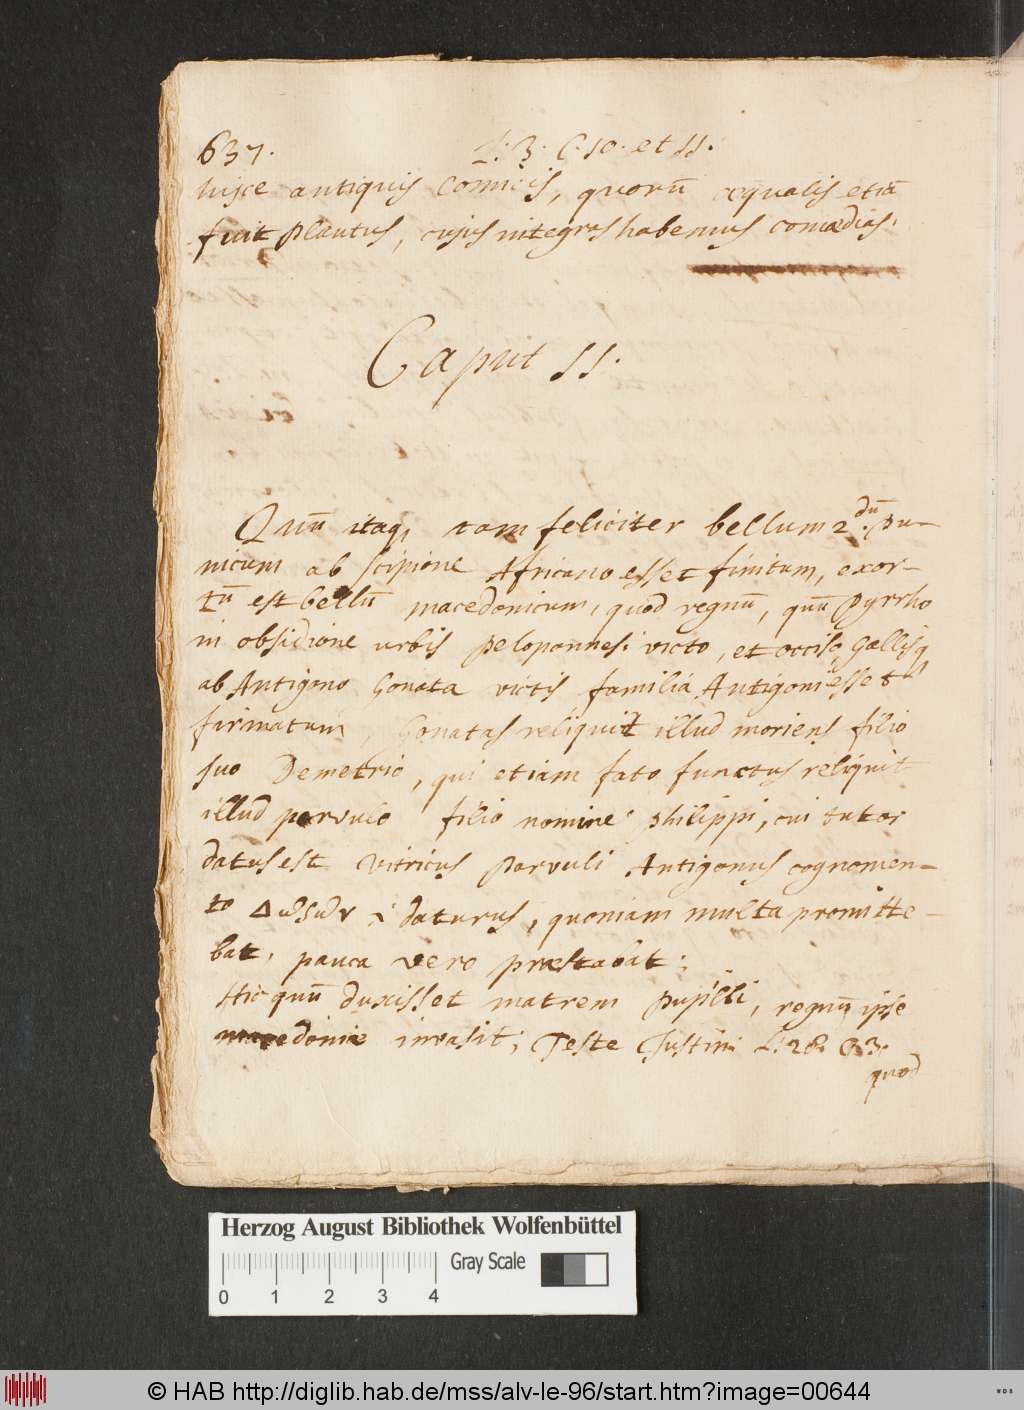 637. L: 3. C. 10. et 11.
hisce antiquis Comicis, quorū æqualis etiā
fuit Plautus, cujus integras habemus comædias.
Caput 11.
Quū itaq, tam feliciter bellum 2dū. Pu-
nicum ab Scipione Africano esset finitum, exor-
tū est bellū macedonicum, quod regnū, quū Pyrrho
in obsidione urbis Peloponnesi victo, et occiso, Gallisq
ab Antigono Gonata victis familia Antigoni esset
firmatum, Gonatas reliquit illud moriens filio
suo Demetrio, qui etiam fato functus reliquit
illud parvulo filio nomine Philippi, cui tutor
datus est vitricus parvuli Antigonus cognomen-
to Δωσων daturus, quoniam multa promitte-
bat, pauca vero præstabat;
Hic quū duxisset matrem pupilli, regnū ipse
macedoniæ invasit; Teste Justini L: 28. C 3.
quod
Herzog August Bibliothek Wolfenbüttel
Gray Scale
0 1 2 3 4
© HAB http://diglib.hab.de/mss/alv-le-96/start.htm?image=00644